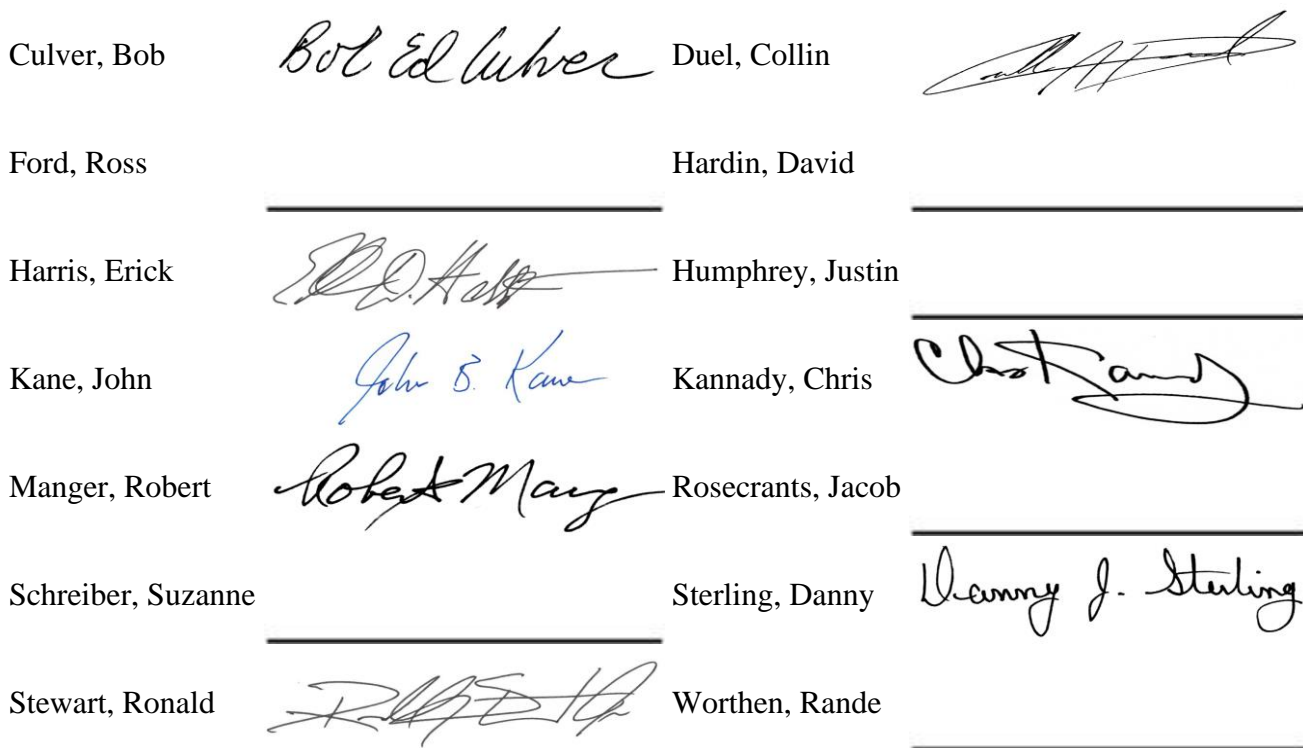 Culver, Bob Bob Ed Culver Duel, Collin
Ford, Ross Hardin, David
Harris, Erick Humphrey, Justin
Kane, John John B. Kane Kannady, Chris
Manger, Robert Robert Mang Rosecrants, Jacob
Schreiber, Suzanne Sterling, Danny Danny J. Sterling
Stewart, Ronald Worthen, Rande